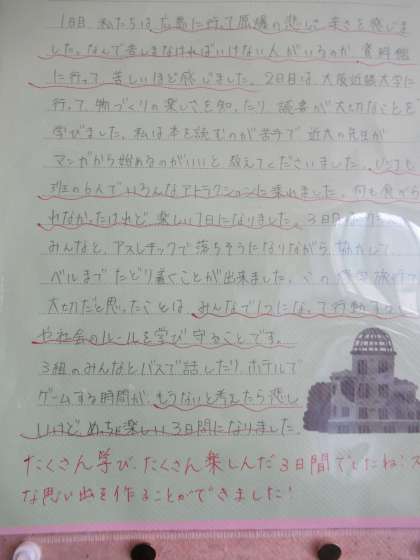 1日目、私たちは広島に行って原爆の悲しさ辛さを感じま
した。なんで苦しまなければいけない人がいるのか、資料館
に行って苦しいほど感じました。2日目は大阪近畿大学に
行って、物づくりの楽しさを知ったり読書が大切なことを
学びました。私は本を読むのが苦手で近大の先生が
マンガから始めるのがいいと教えてくださいました。
班の6人でいろんなアトラクションに乗れました。何も食べら
れなかったけれど、楽しい1日になりました。3日目は
みんなと、アスレチックで落ちそうになりながら
ベルまでたどり着くことが出来ました。この修学旅行で
大切だと思ったことは、みんなで1つになって行動すること
や社会のルールを学び守ることです。
3組のみんなとバスで話したり、ホテルで
ゲームする時間が、もうないと考えたら悲し
いけど、めっちゃ楽しい3日間になりました。
たくさん学び、たくさん楽しんだ3日間でしたね!ス
な思い出を作ることができました!